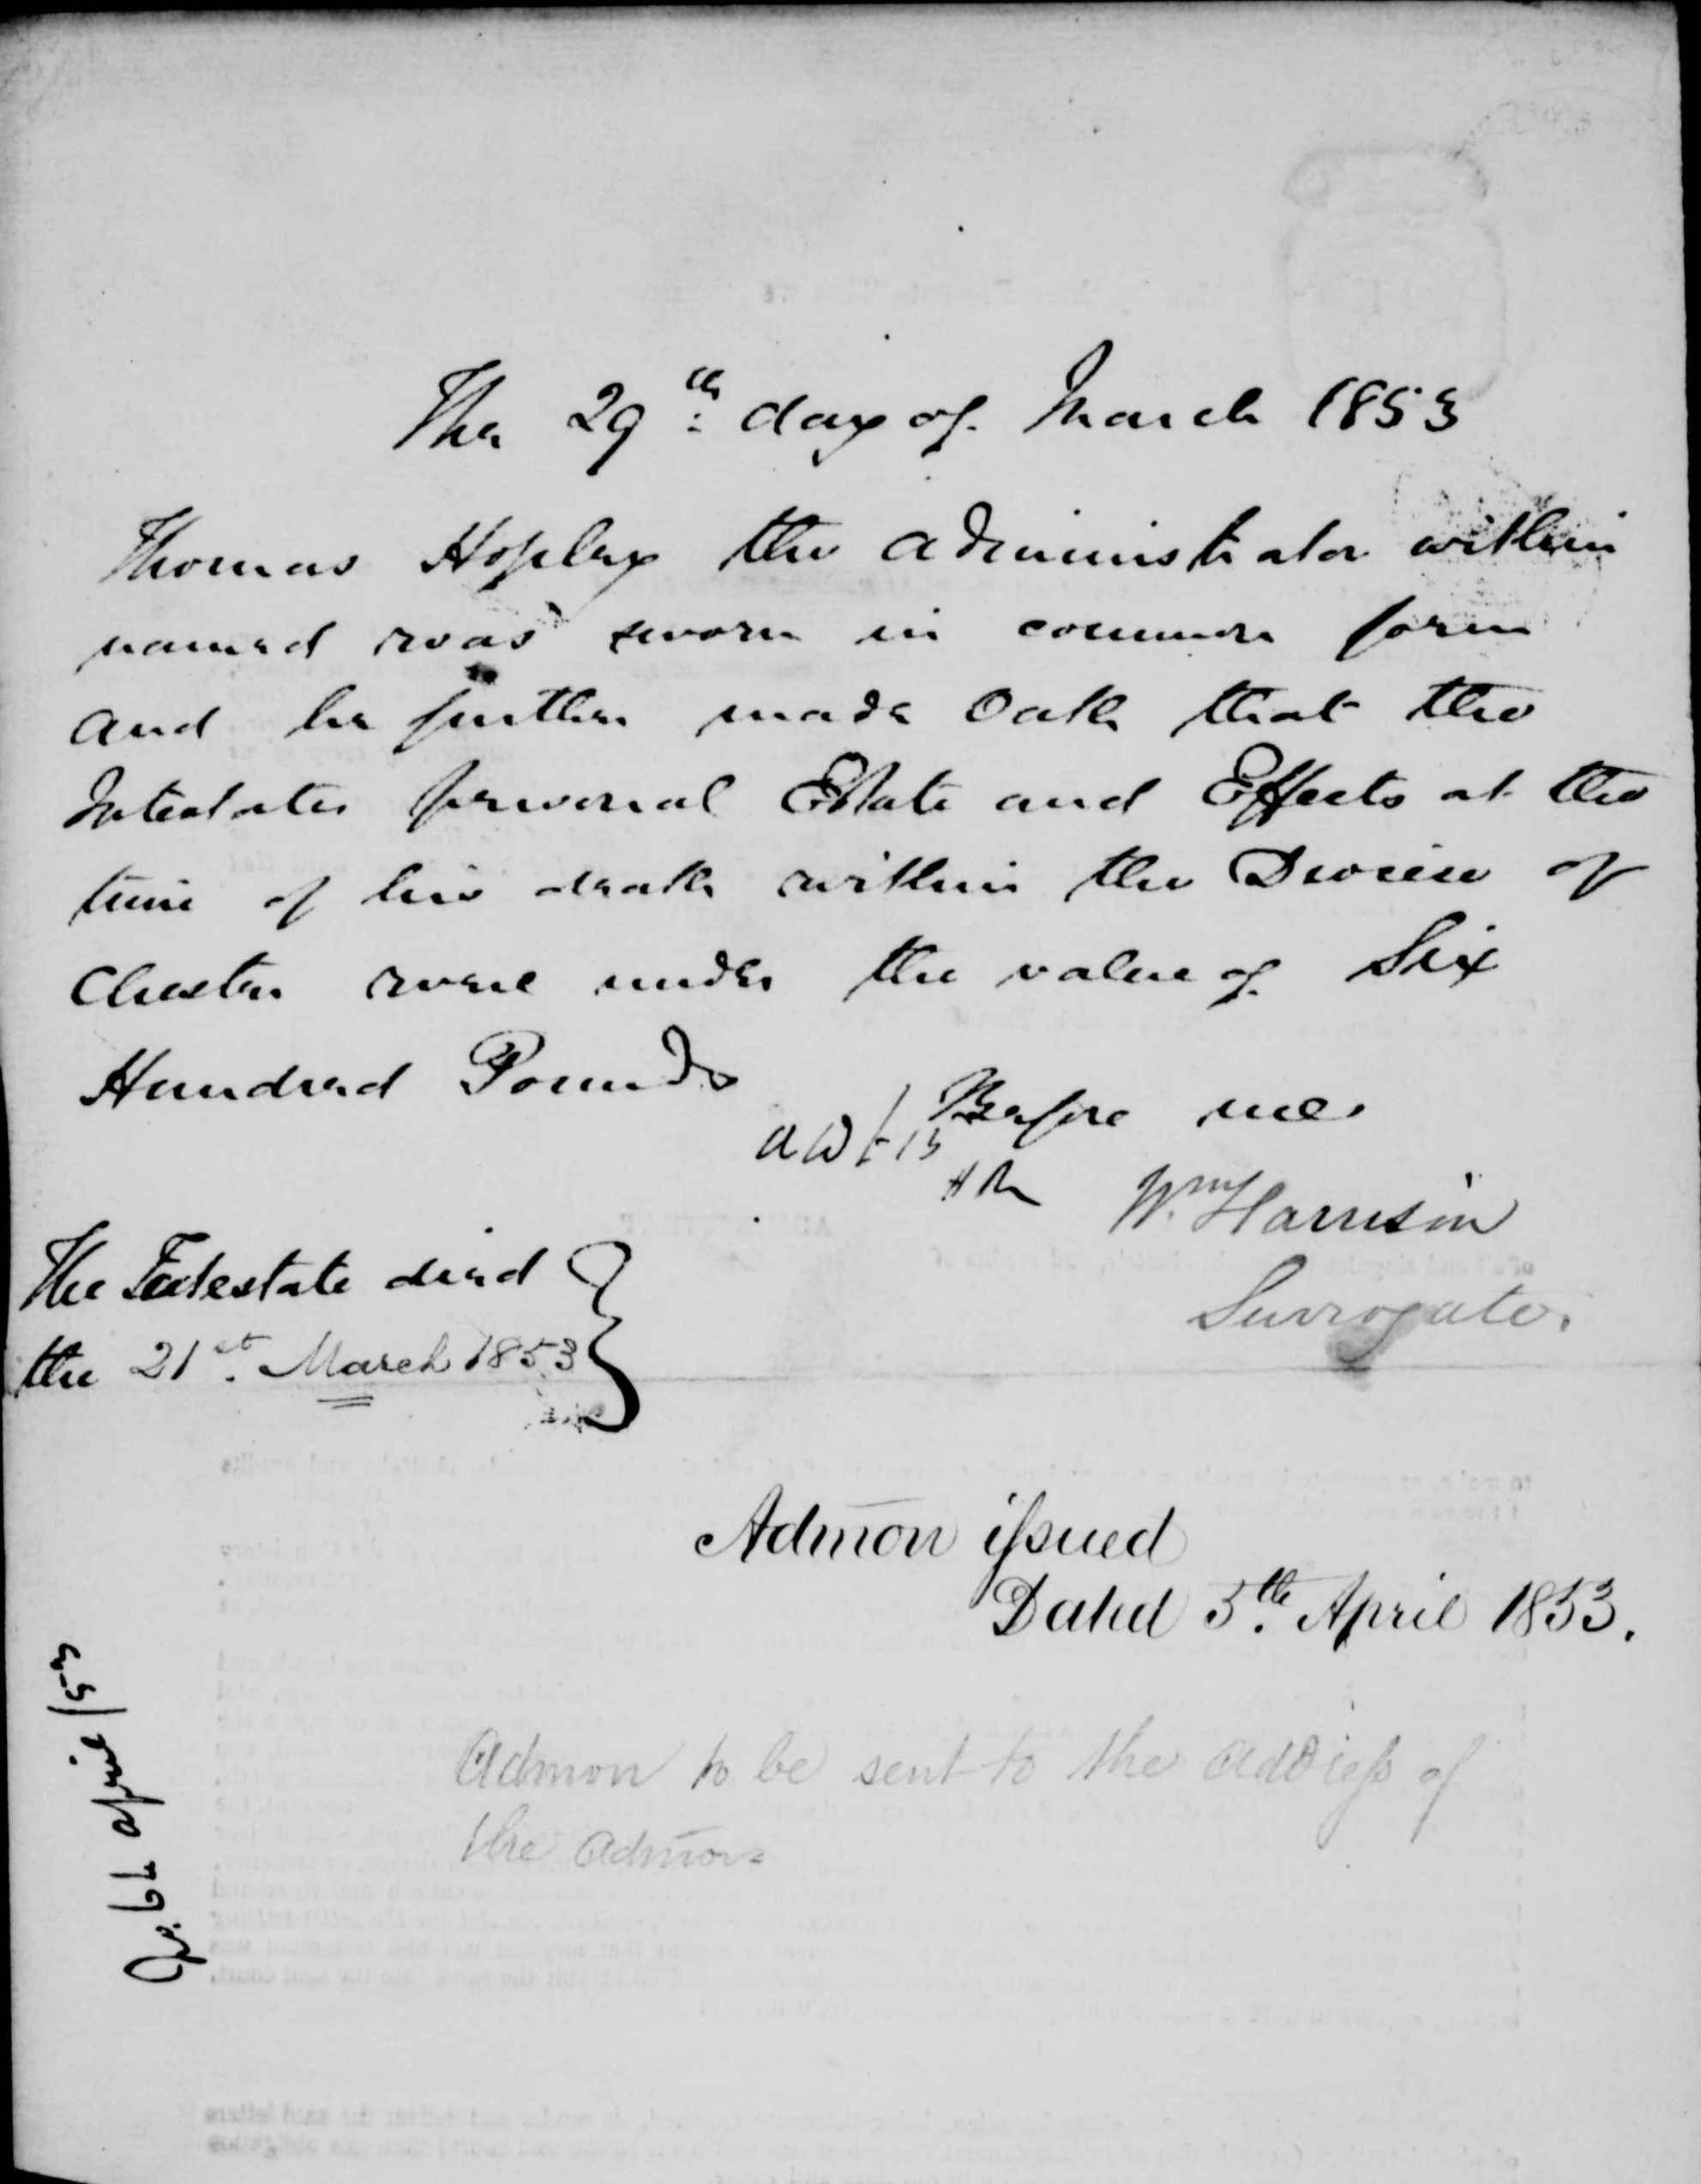 The 29th: day of March 1853
Thomas Hopley the administrator within
named was sworn in common form
and he further made Oath that the
Intestates personal Estate and Effects at the
time of his death within the Diocese of
Chester were under the value of Six
Hundred Pounds
Before me
Wm Harrison
Surrogate.
The Intestate died
the 21st. March 1853
Admon issued
Dated 5th. April 1853.
Admon to be sent to the address of
the Admor
6th april /53